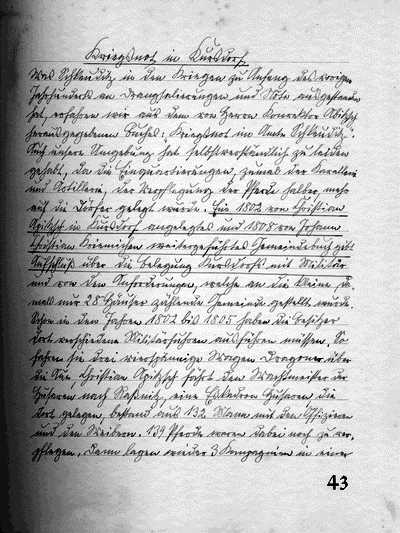 Kriegsnot in Kursdorf.
Was Schkeuditz in den Kriegen zu Anfang des vorigen
Jahrhunderts an Drangsalierungen und Nöten ausgestanden
hat, erfahren wir aus dem von Herrn Konrektor
herausgegebenen Buche: "Kriegsnot im Amte Schkeuditz."
Auch unsere Umgebung hat selbstverständlich zu leiden
gehabt, da die Einquartierungen, zumal der Kavallerie
und Artillerie, der Verpflegung der Pferde halber, mehr
auf die Dörfer gelegt wurde. Ein 1802 von Christian
in Kursdorf angelegtes und 1808 von Johann
Christian weitergeführtes Gemeindebuch gibt
Aufschluß über die Belegung Kursdorfs mit Militär
und von den Anforderungen, welche an die kleine, da-
mals nur 28 Häuser zählende Gemeinde gestellt wurde.
Schon in den Jahren 1802 bis 1805 haben die Besitzer
dort verschiedene Militärfuhren ausführen müssen. So
fahren sie drei vierspännige Wagen Dragoner über
die Christian fährt den Wachtmeister der
Husaren nach Raßnitz, eine Eskadron Husaren die
dort gelegen, bestand aus 132 Mann mit den Offizieren
und den Weibern. 139 Pferde waren dabei noch zu ver-
pflegen. Dann lagen wieder 3 Kompagnien in einer
43